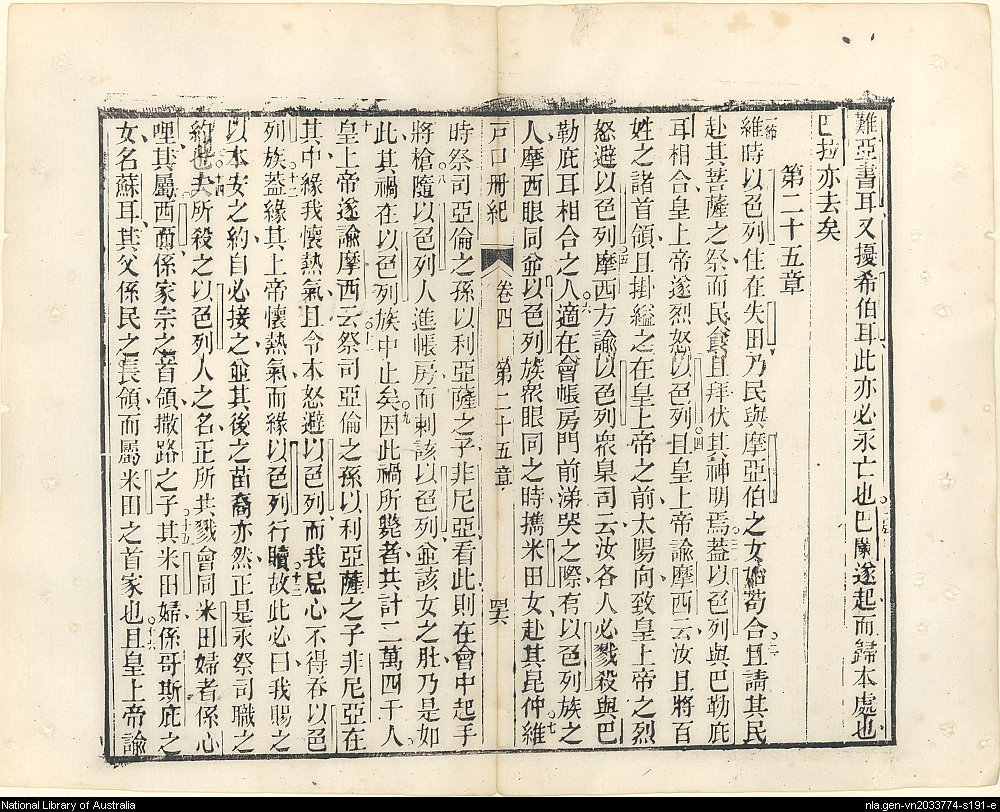 難亞書耳又擾希伯耳此亦必永亡也○二十五巴蘭遂起而歸本處也
巴拉亦去矣
第二十五章
一節維時以色列住在失田乃民與摩亞伯之女始苟合○二且請其民
赴其菩薩之祭而民食且拜伏其神明焉○三蓋以色列與巴勒庇
耳相合皇上帝遂烈怒以色列○四且皇上帝諭摩西云汝且將百
姓之諸首領且掛縊之在皇上帝之前太陽向致皇上帝之烈
怒避以色列○五摩西方諭以色列衆臬司云汝各人必戮殺與巴
勒庇耳相合之人○六適在會帳房門前涕哭之際有以色列族之
人摩西眼同並以色列族衆眼同之時攜米田女赴其昆仲○七維
戶口冊紀 卷四 第二十五章 四六
時祭司亞倫之孫以利亞薩之子非尼亞看此則在會中起手
將槍○八隨以色列人進帳房而刺該以色列並該女之肚乃是如
此其禍在以色列族中止矣○九因此禍所斃者共計二萬四千人
○十皇上帝遂諭摩西云○十一祭司亞倫之孫以利亞薩之子非尼亞在
其中緣我懷熱氣且令本怒避以色列而我忌心不得吞以色
列族○十二蓋緣其上帝懷熱氣而緣以色列行贖故此必曰我賜之
以本安之約○十三自必接之並其後之苗裔亦然正是永祭司職之
約也○十四夫所殺之以色列人之名正所共戮會同米田婦者係心
哩其屬西面係家宗之首領撒路之子○十五其米田婦係哥斯庇之
女名蘇耳其父係民之長領而屬米田之首家也○十六且皇上帝諭